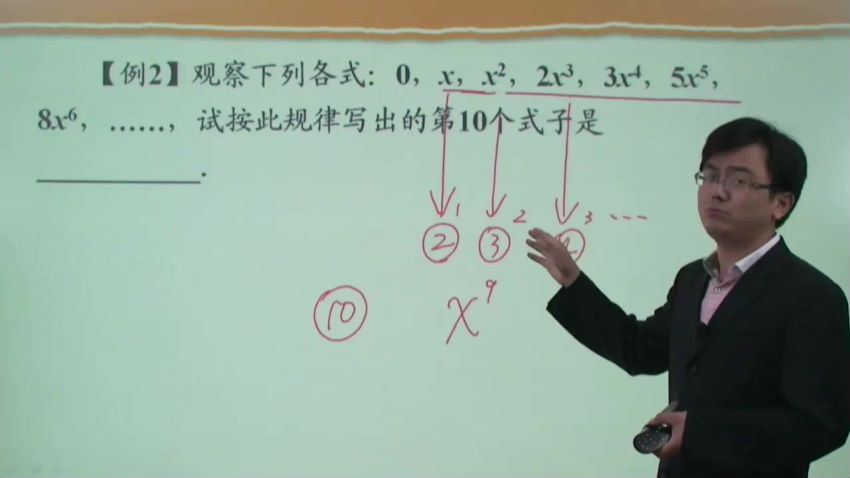 【例2】观察下列各式：0，x，x²，2x³，3x⁴，5x⁵，
8x⁶，……，试按此规律写出的第10个式子是
___________.
1 2 3 ---
② ③ ④
⑩ x⁹